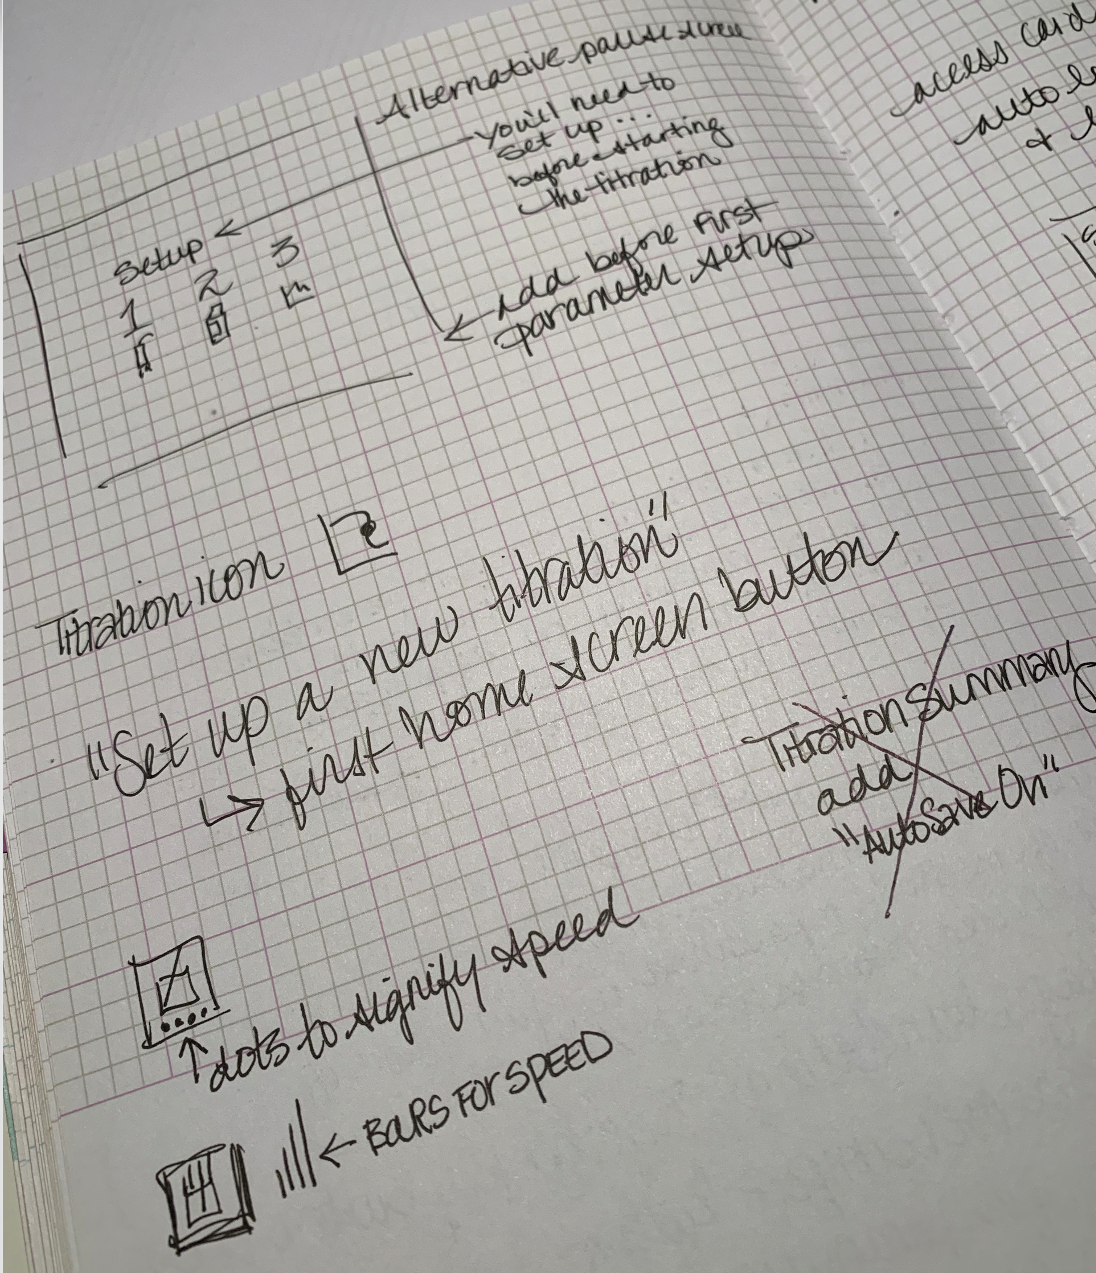 Alternative pause screen
You'll need to
set up ...
before starting
the titration
Setup
1 2 3
Add before first
parameter setup
Titration icon
"Set up a new titration"
first home screen button
Titration Summary
add
"AutoSave On"
dots to signify speed
BARS FOR SPEED
access card
auto